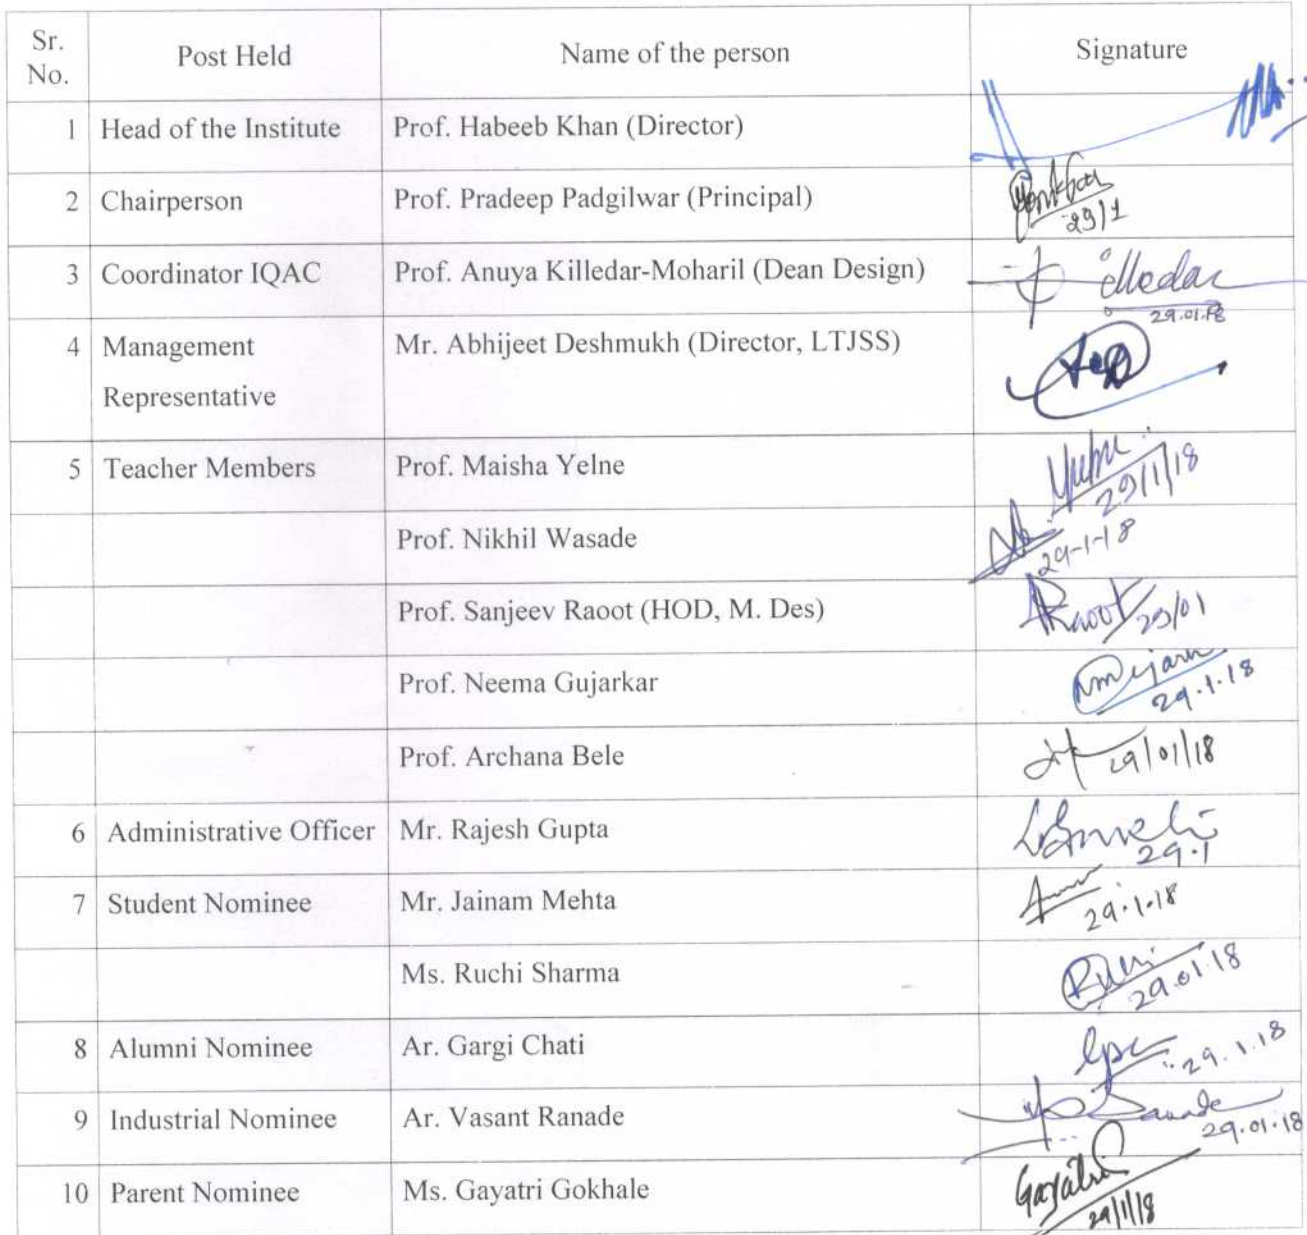 Sr. No. Post Held Name of the person Signature
1 Head of the Institute Prof. Habeeb Khan (Director)
2 Chairperson Prof. Pradeep Padgilwar (Principal) 29/1
3 Coordinator IQAC Prof. Anuya Killedar-Moharil (Dean Design) 29.01.18
4 Management Mr. Abhijeet Deshmukh (Director, LTJSS)
Representative
5 Teacher Members Prof. Maisha Yelne 29/1/18
Prof. Nikhil Wasade 29-1-18
Prof. Sanjeev Raoot (HOD, M. Des) Raoot 29/01
Prof. Neema Gujarkar 29.1.18
Prof. Archana Bele 29/01/18
6 Administrative Officer Mr. Rajesh Gupta 29.1
7 Student Nominee Mr. Jainam Mehta 29.1.18
Ms. Ruchi Sharma 29.01.18
8 Alumni Nominee Ar. Gargi Chati 29.1.18
9 Industrial Nominee Ar. Vasant Ranade Ranade 29.01.18
10 Parent Nominee Ms. Gayatri Gokhale Gayatri 29/1/18